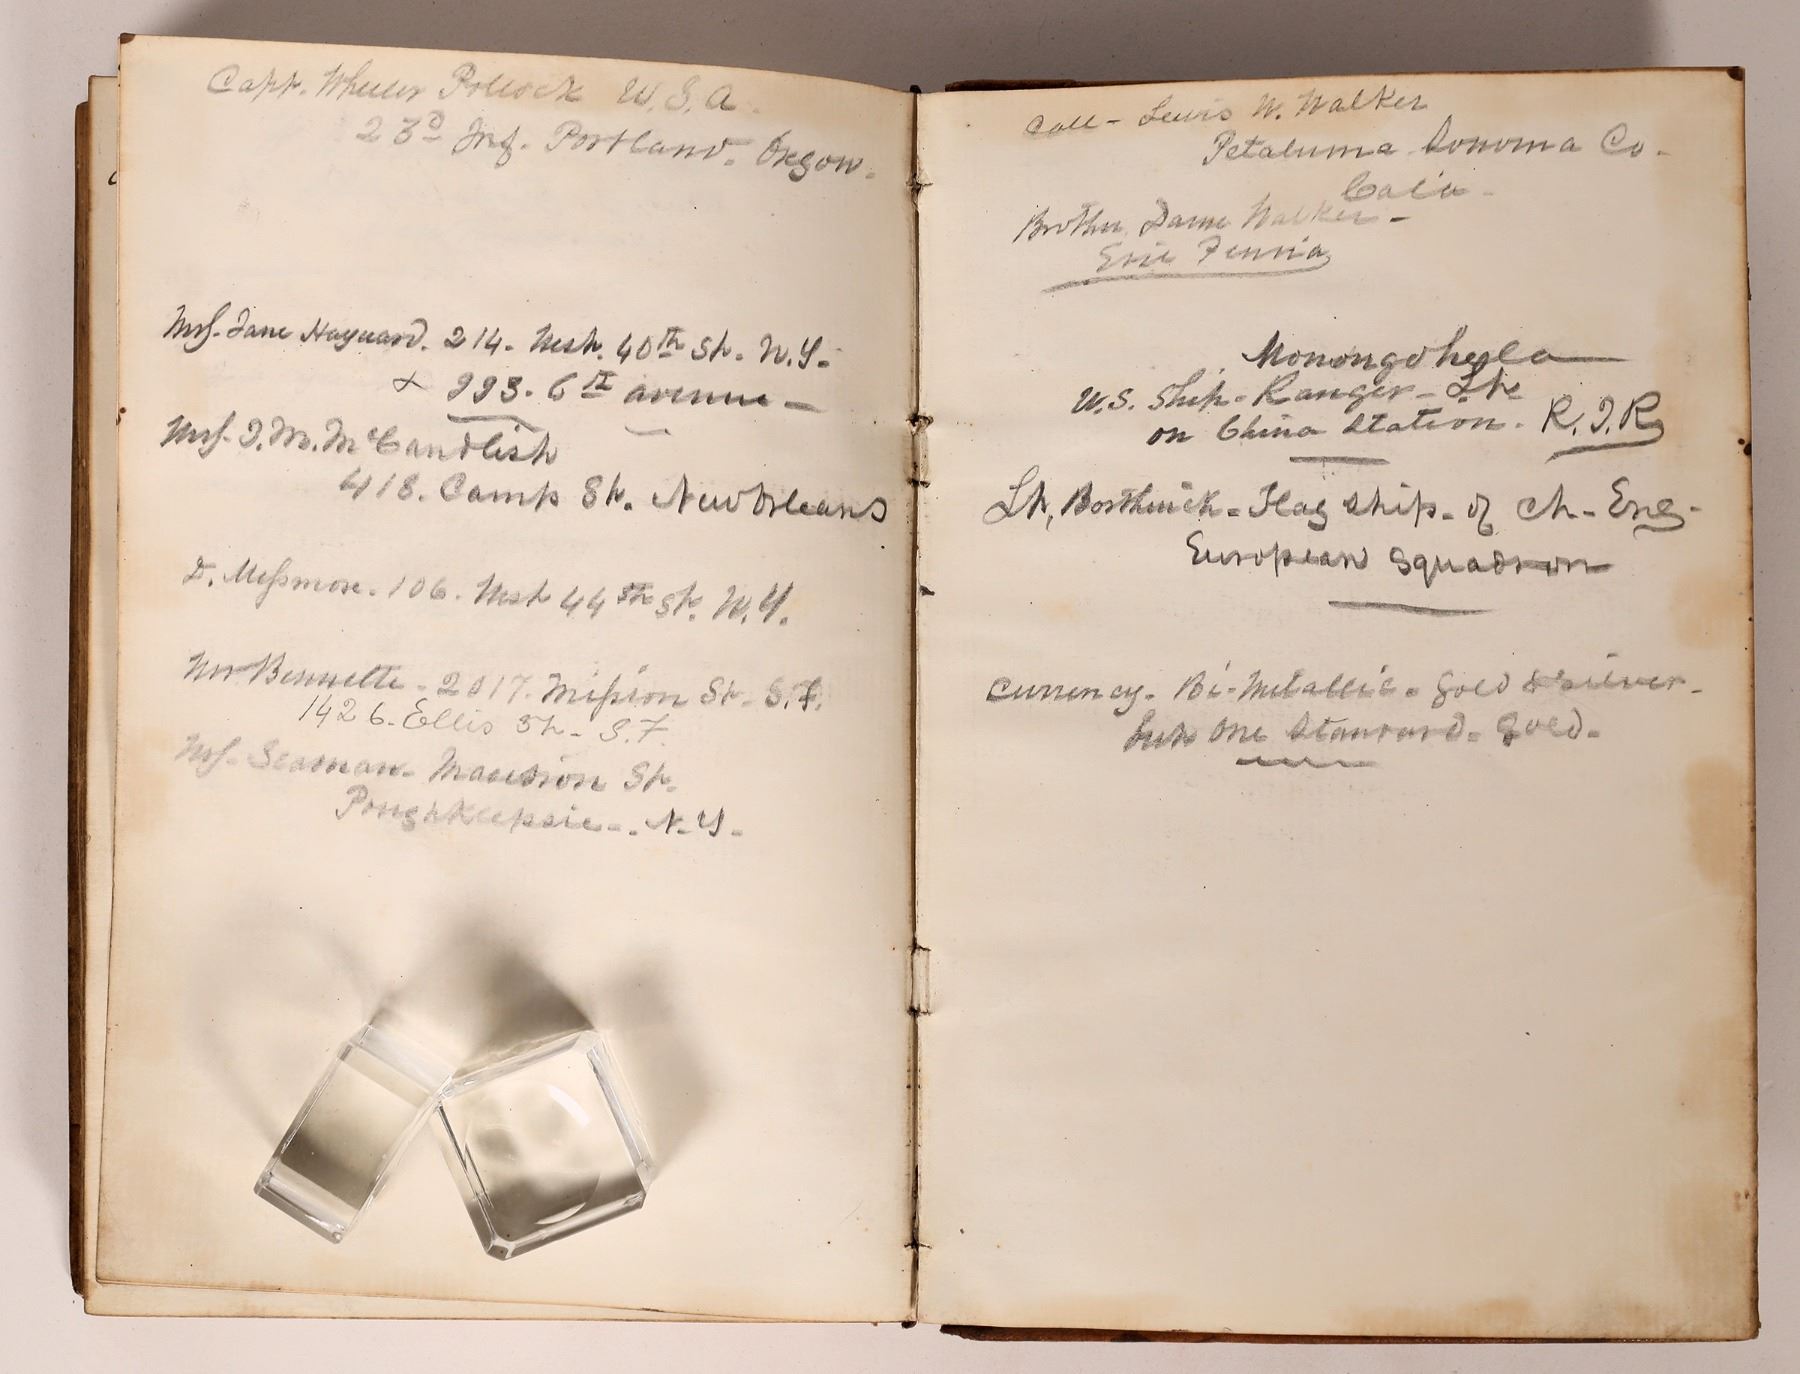 Capt. Wheeler Pollock U.S.A.
23D Inf. Portland. Oregon.
Mrs. Jane Hayward. 214. West. 40th St. N.Y.
993. 6th avenue
Mrs. J. M. McCandlish
418. Camp St. New Orleans
D. Messmore. 106. West 44th St. N.Y.
Mr Bennette - 2017. Mission St. S.F.
1426. Ellis St. S.F.
Mrs. Seaman. Mansion St.
Poughkeepsie - . N.Y.
Call - Lewis W. Walker
Petaluma Sonoma Co.
Cala.
Brother. Walker -
Erie Penna
Monongohela
U.S. Ship. Ranger - Lt.
on China Station. R.J.R
Lt. Borthwick - Flag Ship. of Ch. Eng.
European Squadron
Currency. Bi-Metallic. Gold & silver.
but One Standard. Gold.